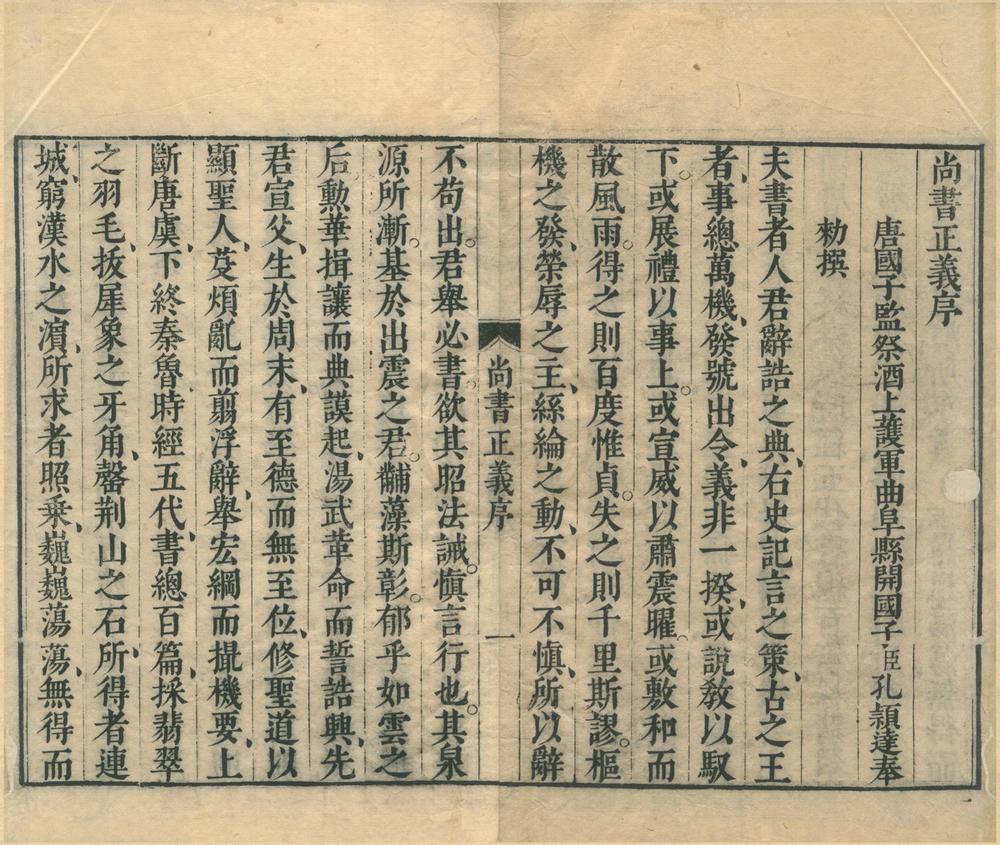 尚書正義序
唐國子監祭酒上護軍曲阜縣開國子臣孔穎達奉
勑撰
夫書者人君辭誥之典、右史記言之策、古之王
者、事總萬機、發號出令、義非一揆、或說敎以馭
下。或展禮以事上。或宣威以肅震曜。或敷和而
散風雨。得之則百度惟貞。失之則千里斯謬。樞
機之發、榮辱之主、絲綸之動、不可不愼、所以辭
尚書正義序
一
不苟出。君舉必書。欲其昭法誡。愼言行也。其泉
源所漸。基於出震之君。黼藻斯彰。郁乎如雲之
后、勲華揖讓而典謨起、湯武革命而誓誥興、先
君宣父、生於周末、有至德而無至位、修聖道以
顯聖人、芟煩亂而翦浮辭、舉宏綱而撮機要、上
斷唐虞、下終秦魯時經五代、書總百篇、採翡翠
之羽毛、拔犀象之牙角、罄荆山之石、所得者連
城、窮漢水之濵、所求者照乗、巍巍蕩蕩、無得而